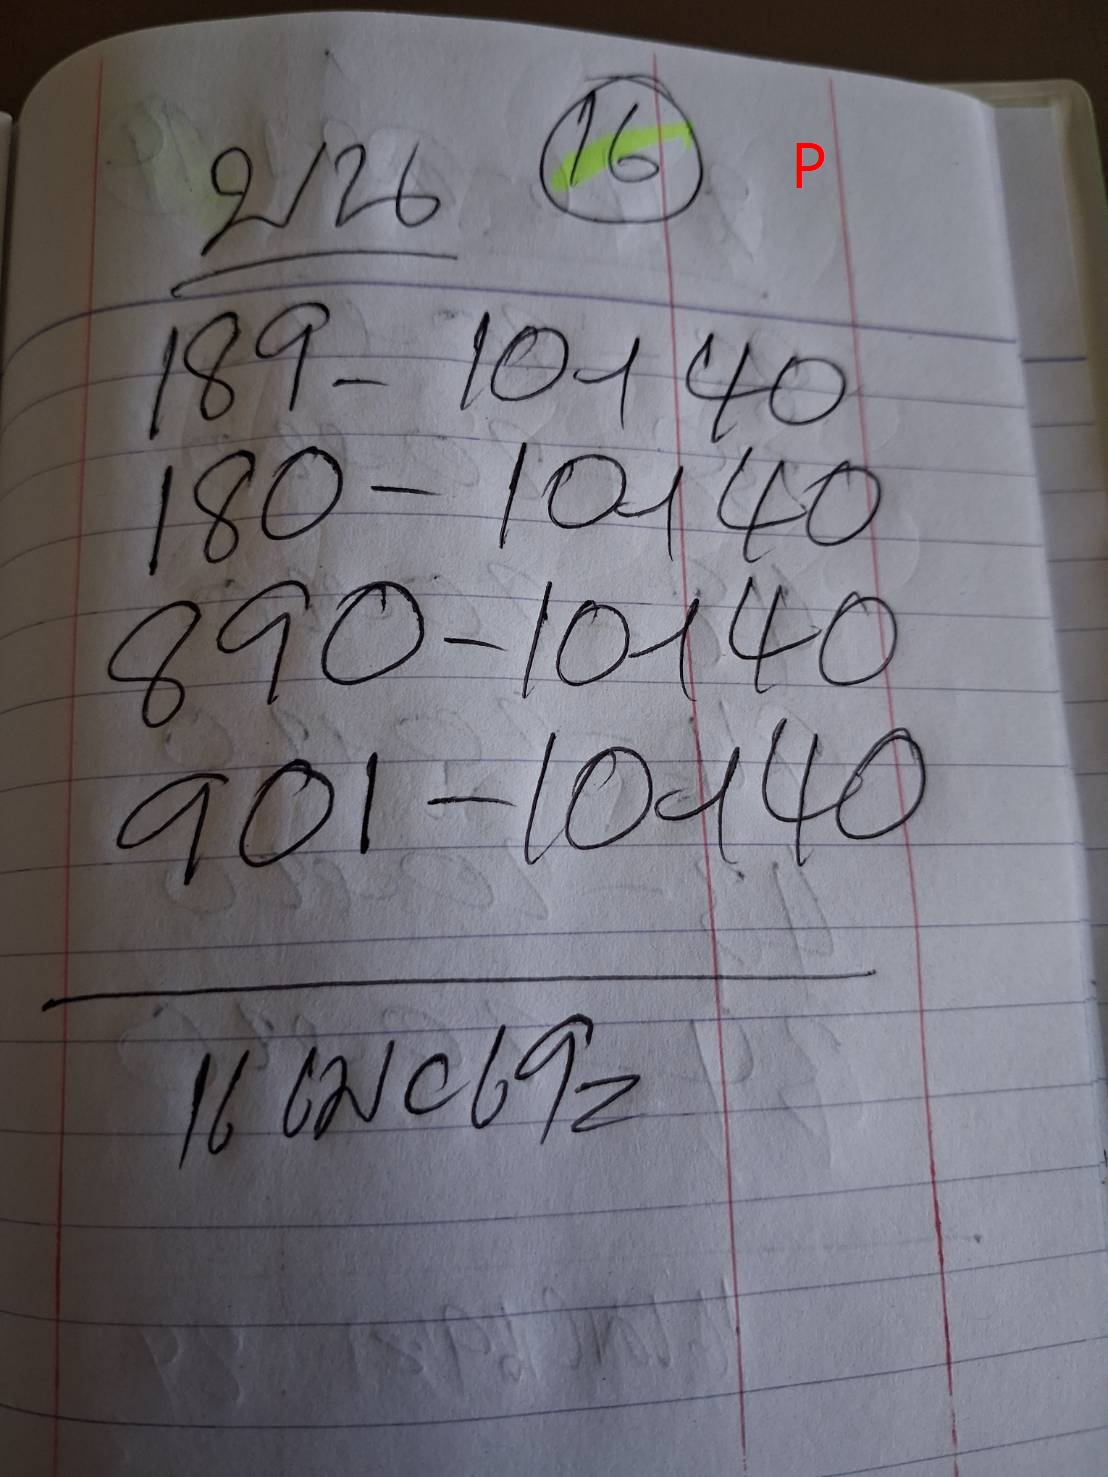 บน 16 P
189 - 10 + 40
180 - 10 + 40
890 - 10 + 40
901 - 10 + 40
16 เมษ 69